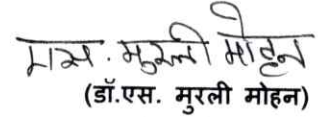 एस. मुरली मोहन
(डॉ.एस. मुरली मोहन)